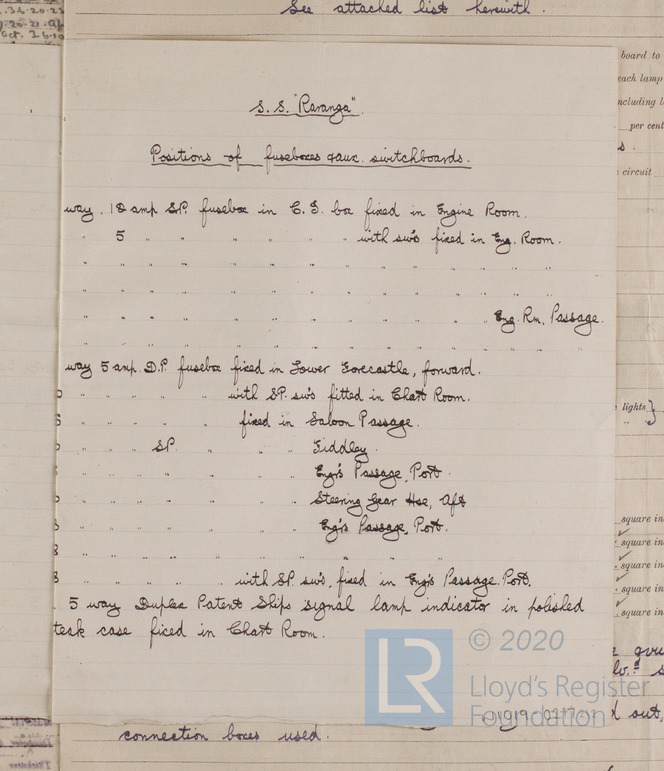 See attached list herewith.
S.S. "Raranga".
Positions of fuseboxes & aux. switchboards.
way. 10 amp S.P. fusebox in C.I. box fixed in Engine Room.
" 5 " " " " " " with sw's fixed in Eng. Room.
" " " " " " " " " " " " "
" " " " " " " " " " " " "
" " " " " " " " " " " Eng. Rm. Passage.
" " " " " " " " " " " " "
way 5 amp D.P. fusebox fixed in Lower Forecastle, forward.
" " " " " with S.P. sw's fitted in Chart Room.
" " " " " fixed in Saloon Passage.
" " " S.P. " " " Fiddley.
" " " " " " " Engr's Passage, Port.
" " " " " " " Steering Gear Hse, Aft
" " " " " " " Eng's Passage, Port.
" " " " " " " " " "
" " " " " with S.P. sw's, fixed in Eng's Passage. Port.
5 way Duplex Patent Ships signal lamp indicator in polished
teak case fixed in Chart Room.
connection boxes used.
board to
each lamp
including l
per cent
circuit
lights }
square in
square in
square in
square in
square in
d out,
© 2020
LR
Lloyd's Register
Foundation